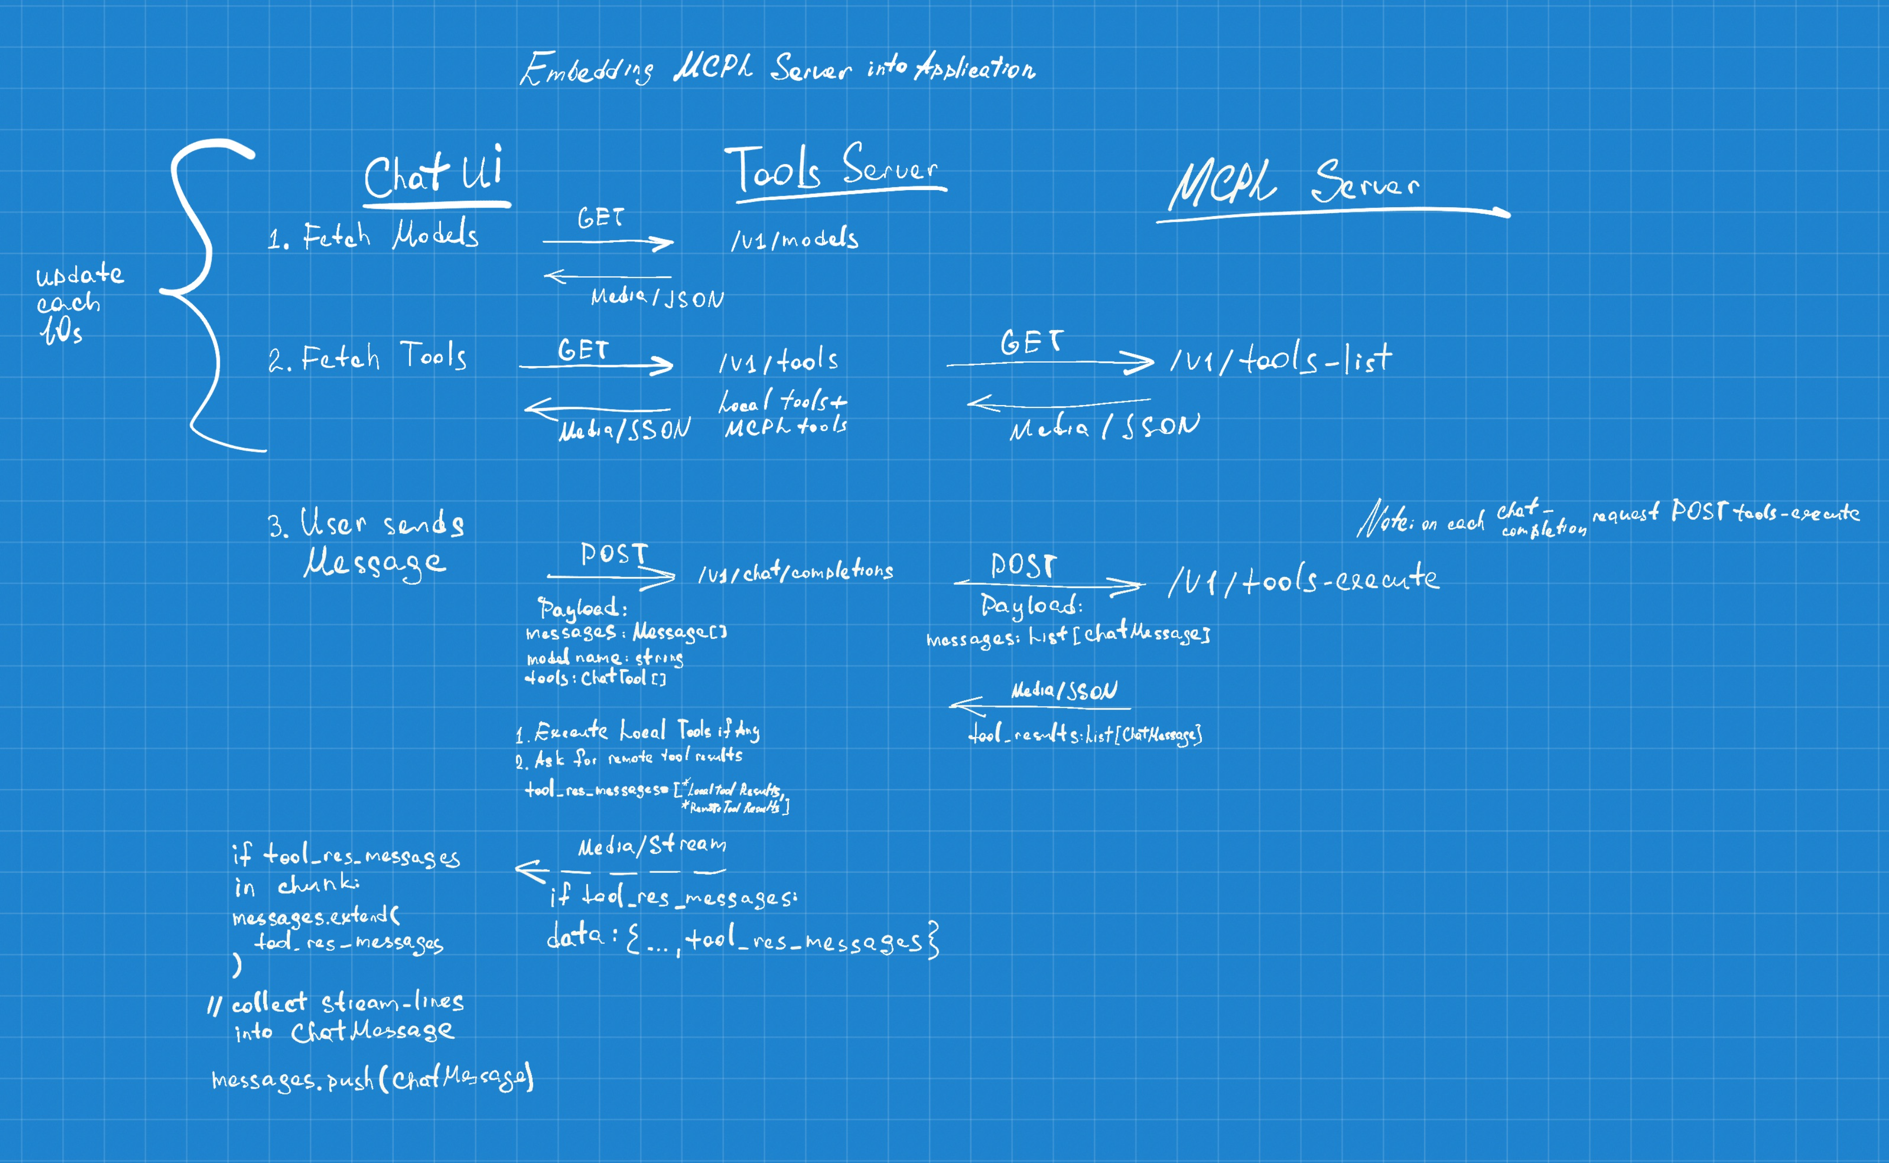 Embedding MCPh Server into Application
Chat Ui
Tools Server
MCPh Server
update
each
10s
1. Fetch Models
GET
/v1/models
Media/JSON
2. Fetch Tools
GET
/v1/tools
Local tools+
MCPh tools
Media/JSON
GET
/v1/tools-list
Media/JSON
3. User sends
Message
POST
/v1/chat/completions
Payload:
messages: Message[]
model name: string
tools: ChatTool[]
POST
/v1/tools-execute
Payload:
messages: List[ChatMessage]
Note: on each chat-
completion request POST tools-execute
Media/JSON
tool_results: List[ChatMessage]
1. Execute Local Tools if Any
2. Ask for remote tool results
tool_res_messages=[*LocalTool Results,
*RemoteTool Results]
Media/Stream
if tool_res_messages:
data: {..., tool_res_messages}
if tool_res_messages
in chunk:
messages.extend(
tool_res_messages
)
// collect stream-lines
into ChatMessage
messages.push(ChatMessage)